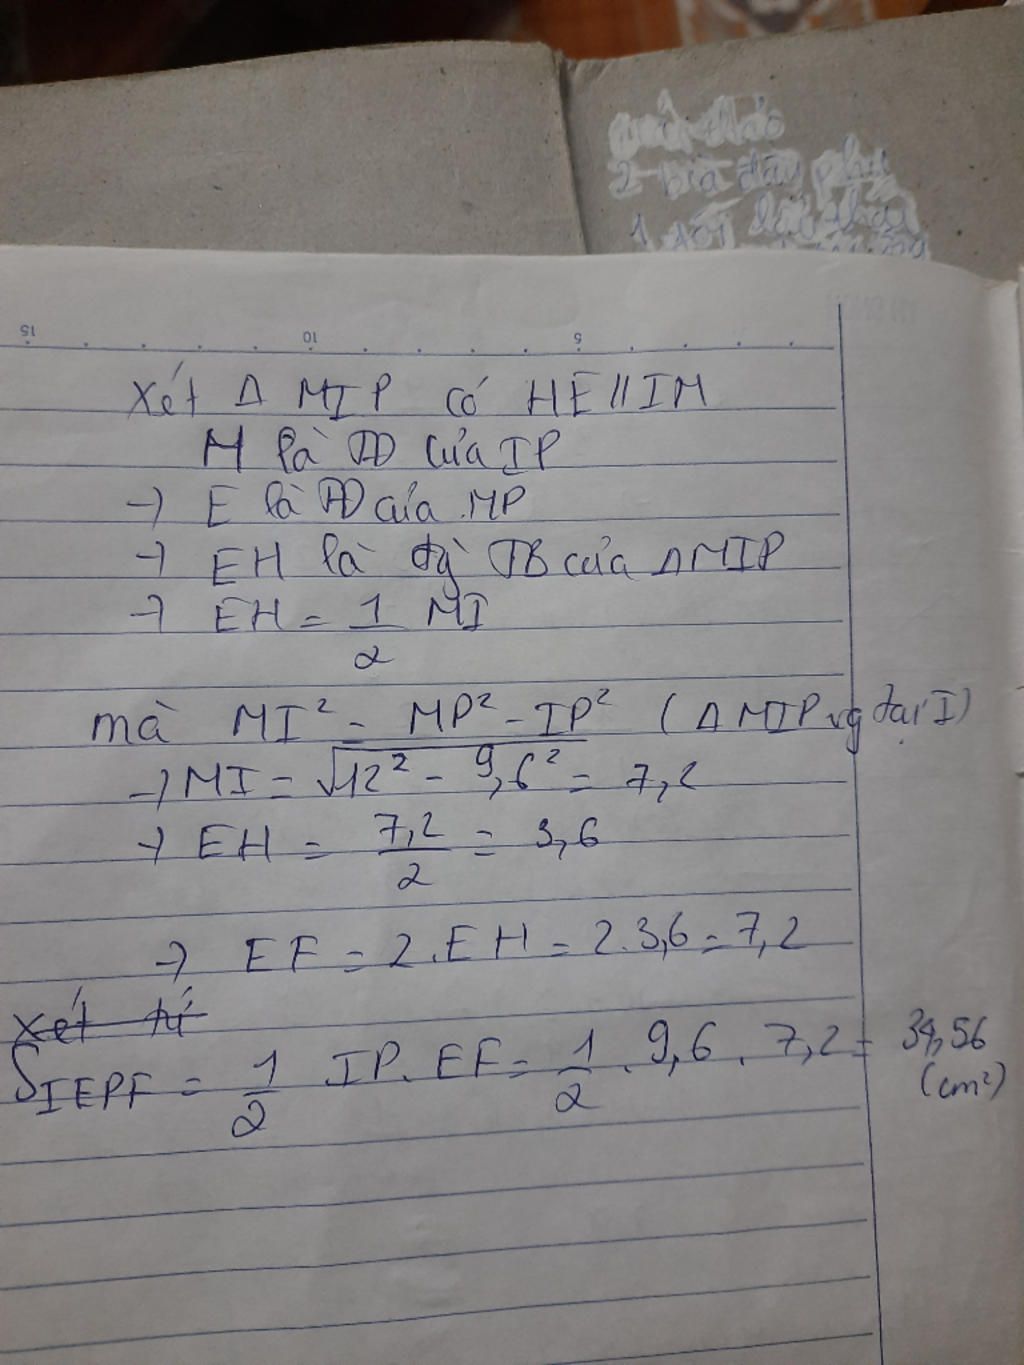 2 bìa
1
15 10 5
Xét Δ MIP có HE // IM
H là TĐ của IP
→ E là TĐ của MP
→ EH là đg TB của ΔMIP
→ EH = 1/2 MI
mà MI² = MP² - IP² (ΔMIP vg tại I)
→ MI = √12² - 9,6² = 7,2
→ EH = 7,2/2 = 3,6
→ EF = 2.EH = 2.3,6 = 7,2
Xét tứ
S_IEPF = 1/2 IP. EF = 1/2 . 9,6 . 7,2 = 34,56
(cm²)